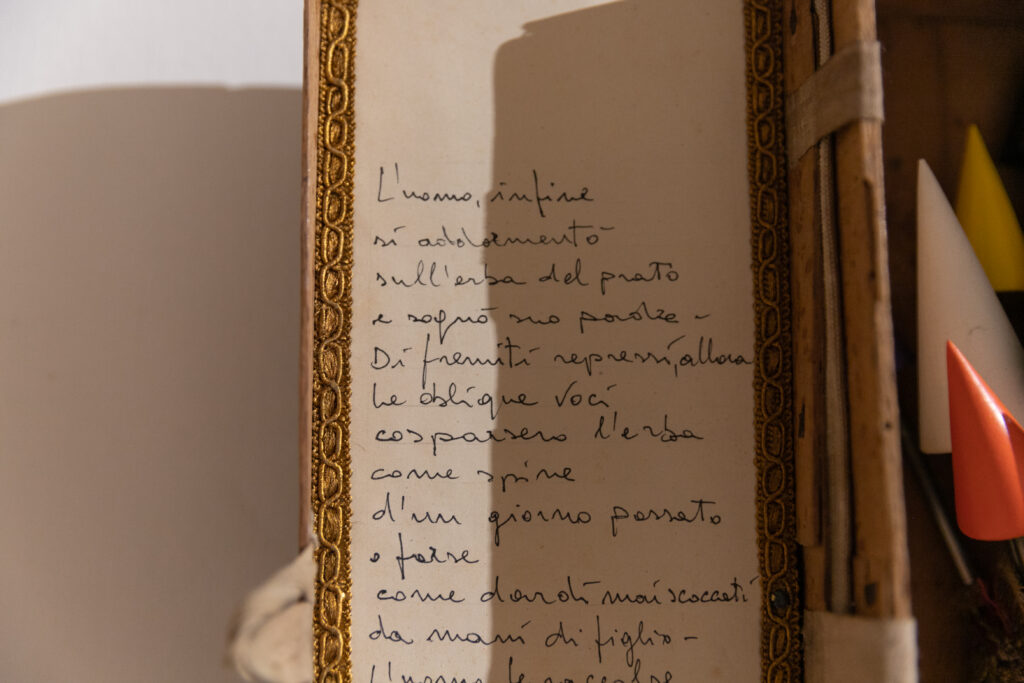 L'uomo, infine
si addormentò
sull'erba del prato
e sognò sno parole -
Di fremiti repressi, allora
le oblique voci
cosparsero l'erba
come spine
d'un giorno passato
o forse
come dardi mai scoccati
da mani di figlio -
L'uomo le raccolse